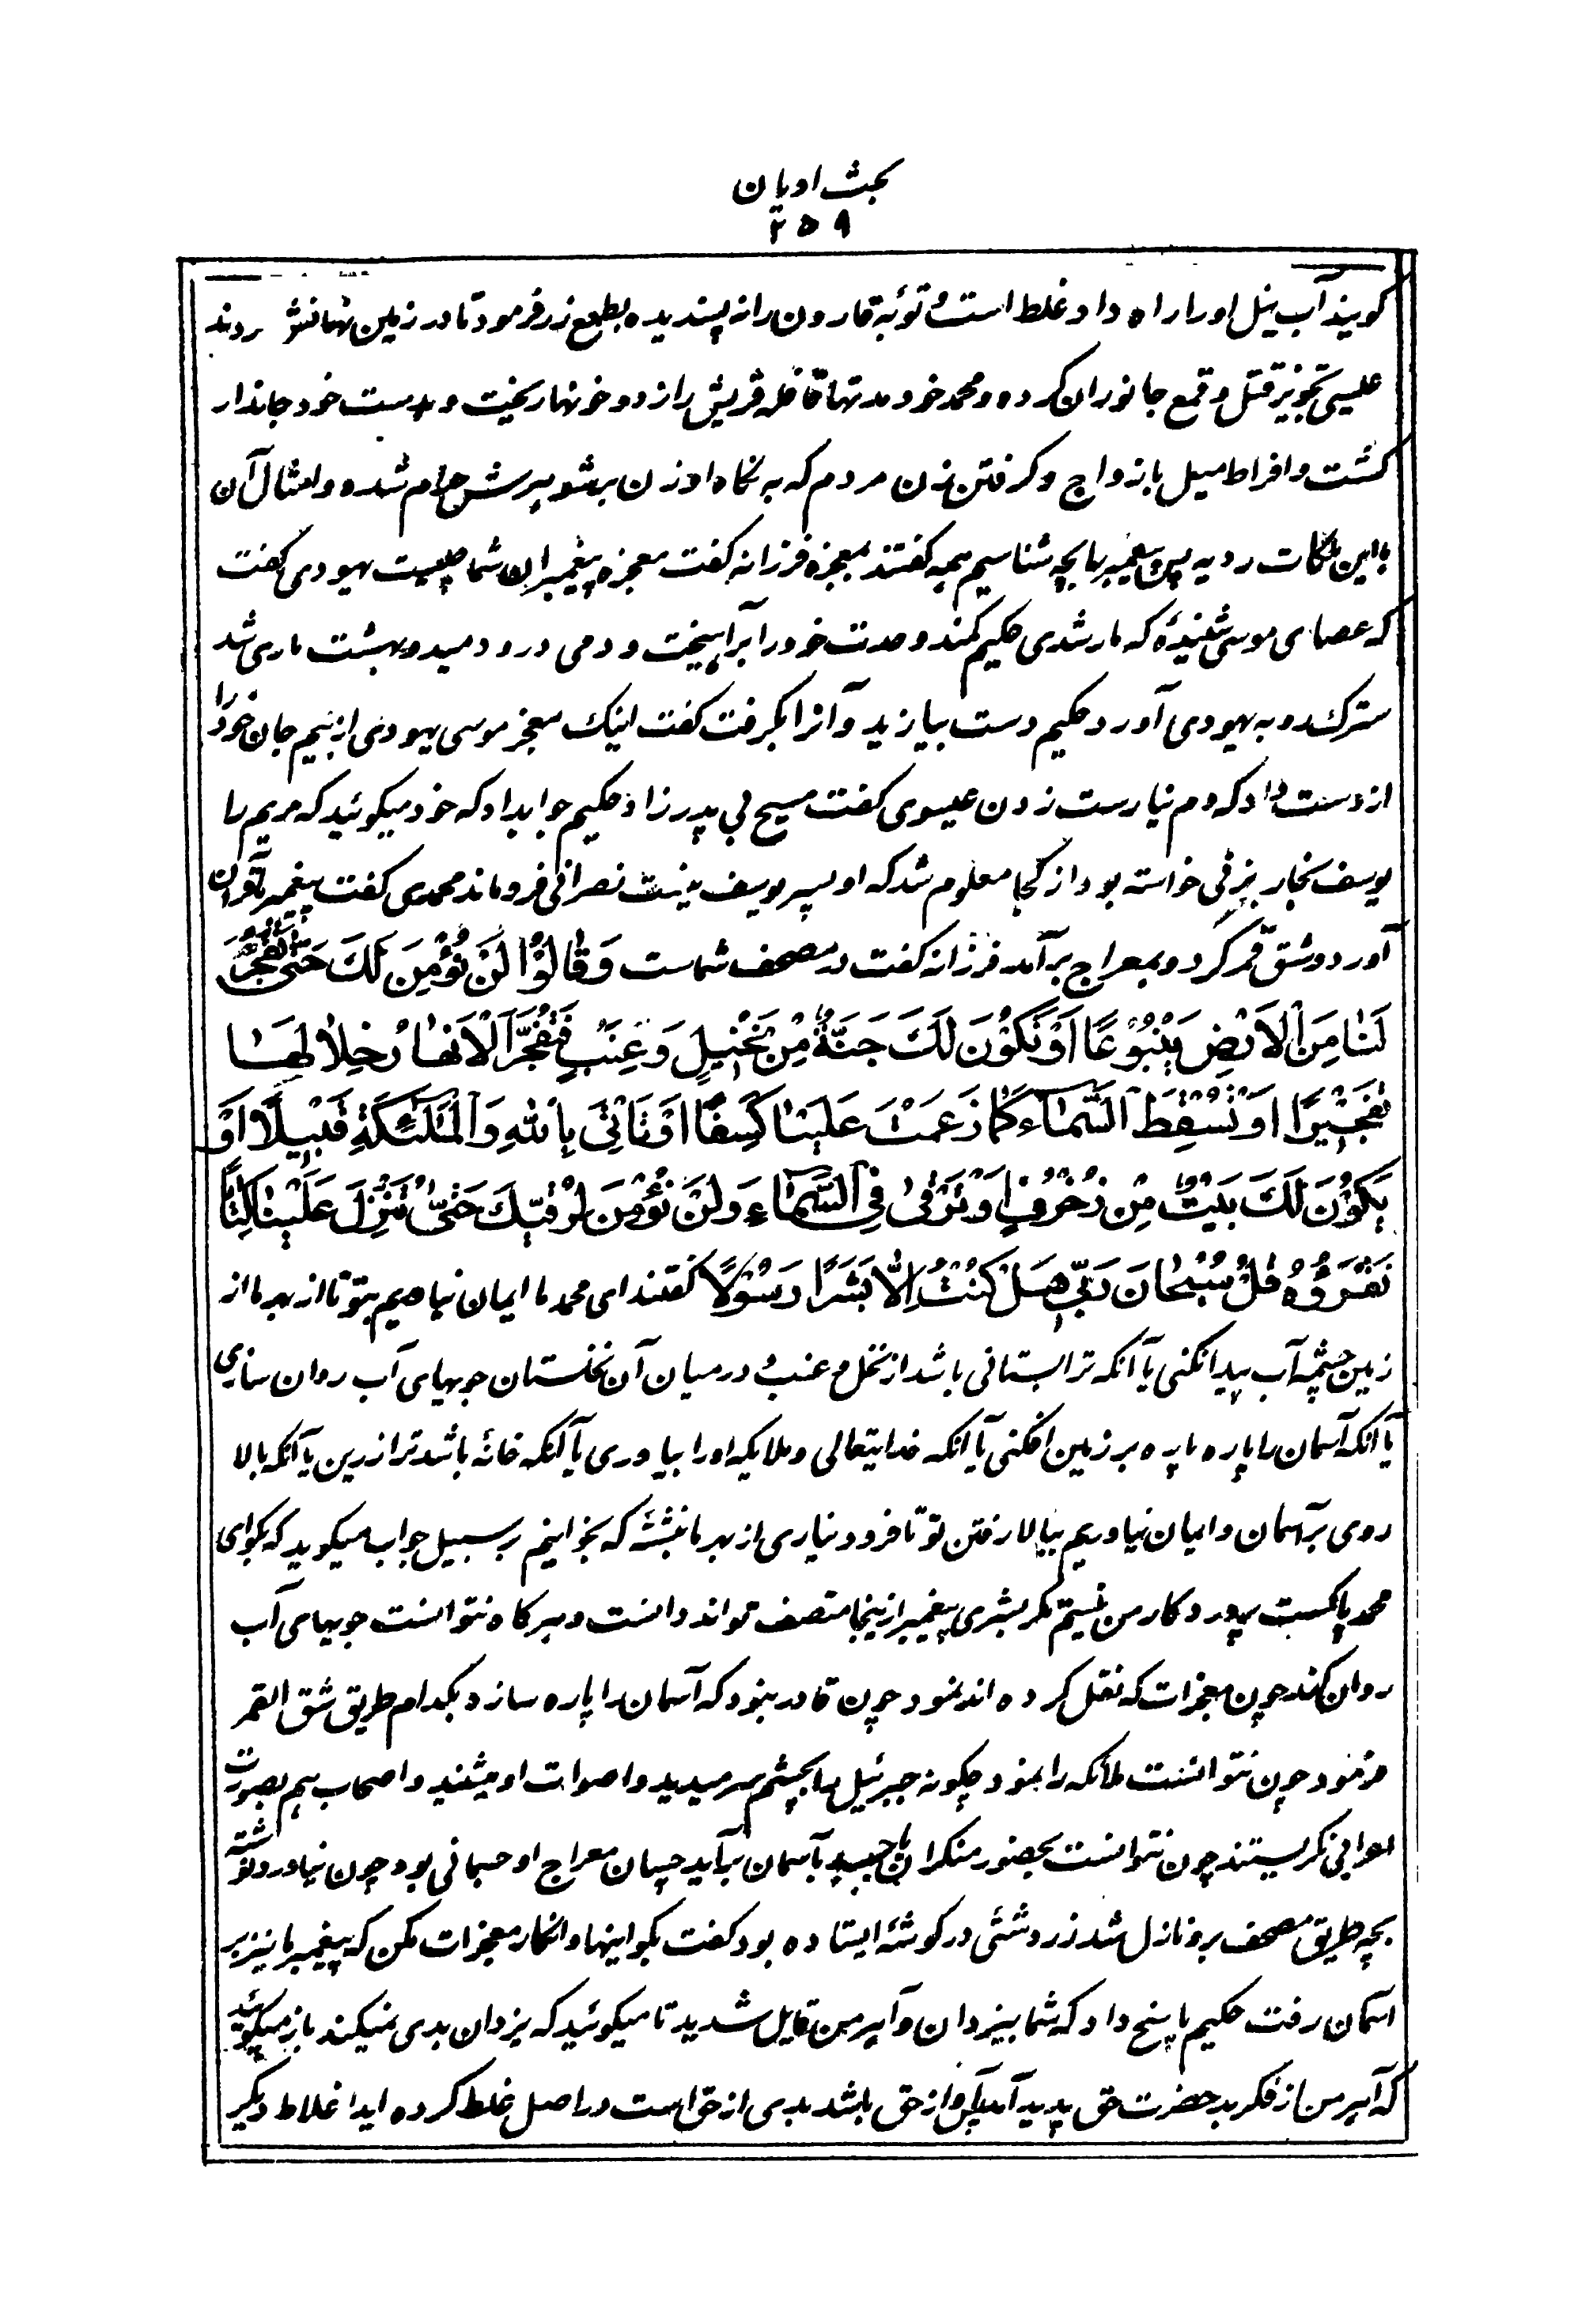 بحث ادیان
۲۵۹
کویند آب نیل اورا راه داد غلط است و توبۀ قارون را نه پسندیده بطمع زر فرمود تا در زمین نهانش بردند
عیسی تجویز قتل و قمع جانوران کرده و محمد خود مدتها قافله قریش را زد و خونها ریخت و بدست خود جاندار
کشت و افراط میل بازواج و کرفتن زن مردم که به نکاه او زن بر شوهرش حرام شده و امثال آن
با این ملکات ردیه پس پیغمبر را بچه شناسیم همه کفتند بمعجزه فرزانه کفت معجزه پیغمبران شما چیست یهودی کفت
که عصای موسی شنیدۀ که مار شدی حکیم کمند وحدت خود را برآهیخت و دمی درو دمید و بهشت ماری شد
سترک و رو به یهودی آورد حکیم دست بیازید و آنرا بکرفت کفت اینک معجز موسی یهودی از بیم جان خود را
از دست داد که دم نیارست زدن عیسوی کفت مسیح بی پدر زاد حکیم جوابداد که خود میکوئید که مریم را
یوسف نجار بزنی خواسته بود از کجا معلوم شد که او پسر یوسف نیست نصرانی فروماند محمدی کفت پیغمبر ما قرآن
آورد و شق قمر کرد و بمعراج برآمد فرزانه کفت در مصحف شماست وَقَالُوْا لَنْ نُؤْمِنَ لَكَ حَتّٰى تَفْجُرَ
لَنَا مِنَ الْاَرْضِ يَنْبُوْعًا اَوْ تَكُوْنَ لَكَ جَنَّةٌ مِنْ نَخِيْلٍ وَعِنَبٍ فَتُفَجِّرَ الْاَنْهَارَ خِلَالَهَا
تَفْجِيْرًا اَوْ تُسْقِطَ السَّمَاءَ كَمَا زَعَمْتَ عَلَيْنَا كِسَفًا اَوْ تَاْتِيَ بِاللهِ وَالْمَلٰئِكَةِ قَبِيْلًا اَوْ
يَكُوْنَ لَكَ بَيْتٌ مِنْ زُخْرُفٍ اَوْ تَرْقٰى فِي السَّمَاءِ وَلَنْ نُؤْمِنَ لِرُقِيِّكَ حَتّٰى تُنَزِّلَ عَلَيْنَا كِتَابًا
نَقْرَؤُهُ قُلْ سُبْحَانَ رَبِّي هَلْ كُنْتُ اِلَّا بَشَرًا رَسُوْلًا کفتند ای محمد ما ایمان نیاریم بتو تا از بهر ما از
زمین چشمه آب پیدا نکنی یا آنکه ترا بستانی باشد از نخل و عنب و درمیان آن نخلستان جویهای آب روان سازی
یا آنکه آسمان را پاره پاره بر زمین افکنی یا آنکه خدایتعالی و ملایکه او را بیاوری یا آنکه خانۀ باشد ترا زرین یا آنکه بالا
روی بر آسمان و ایمان نیاوریم ببالا رفتن تو تا فرود نیاری از بهر ما نبشتۀ که بخوانیم بر سبیل جواب میکوید که بکو ای
محمد پاکست پرورد کار من نیستم مکر بشری پیغمبر ازینجا منصف تواند دانست و هر کاه نتوانست جویهای آب
روان کند چون معجزات که نقل کرده اند نمود چون قادر نبود که آسمان را پاره سازد بکدام طریق شق القمر
فرمود چون نتوانست ملائکه را نمود چکونه جبرئیل را بچشم سر میدید و اصوات او میشنید و اصحاب هم بصورت
اعرابی نکریستند چون نتوانست بحضور منکران با جسد بآسمان برآید چسان معراج او جسمانی بود چون نیاورد نوشته
بچه طریق مصحف برو نازل شد زردشتی در کوشۀ ایستاده بود کفت بکو اینها و انکار معجزات مکن که پیغمبر ما نیز بر
آسمان رفت حکیم پاسخ داد که شما بیزدان و آهرمن قایل شدید تا میکوئید که یزدان بدی نمیکند باز میکوئید
که آهرمن از فکر بد حضرت حق پدید آمد پس او از حق باشد بدی از حق است در اصل غلط کرده اید اغلاط دیکر